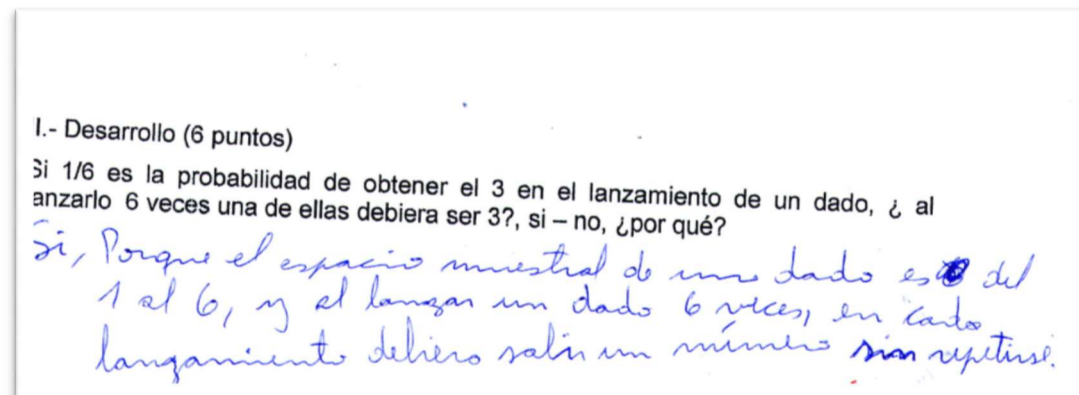 I.- Desarrollo (6 puntos)
Si 1/6 es la probabilidad de obtener el 3 en el lanzamiento de un dado, ¿ al
anzarlo 6 veces una de ellas debiera ser 3?, si – no, ¿por qué?
Si, Porque el espacio muestral de un dado es del
1 al 6, y al lanzar un dado 6 veces, en cada
lanzamiento debiera salir un número sin repetirse.